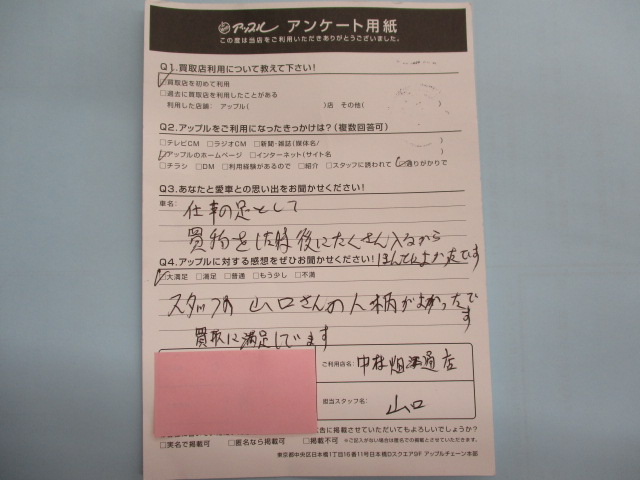 アップル アンケート用紙
この度は当店をご利用いただきありがとうございました。
Q1.買取店利用について教えて下さい!
□買取店を初めて利用
□過去に買取店を利用したことがある
利用した店舗: アップル( )店 その他( )
Q2.アップルをご利用になったきっかけは?(複数回答可)
□テレビCM □ラジオCM □新聞・雑誌(媒体名/ )
□アップルのホームページ □インターネット(サイト名 )
□チラシ □DM □利用経験があるので □紹介 □スタッフに誘われて □通りがかりで
Q3.あなたと愛車との思い出をお聞かせください!
車名:
仕事の足として
買物をした時後にたくさん入るから
ほんとによかったです
Q4.アップルに対する感想をぜひお聞かせください!
□大満足 □満足 □普通 □もう少し □不満
スタッフの山口さんの人柄がよかったです
買取に満足しています
ご利用店名: 中村畑江通店
担当スタッフ名: 山口
告に掲載させていただいてもよろしいでしょうか?
□実名で掲載可 □匿名なら掲載可 □掲載不可 ※ご記入がない場合は匿名での掲載とさせていただきます。
東京都中央区日本橋1丁目16番11号日本橋Dスクエア9F アップルチェーン本部